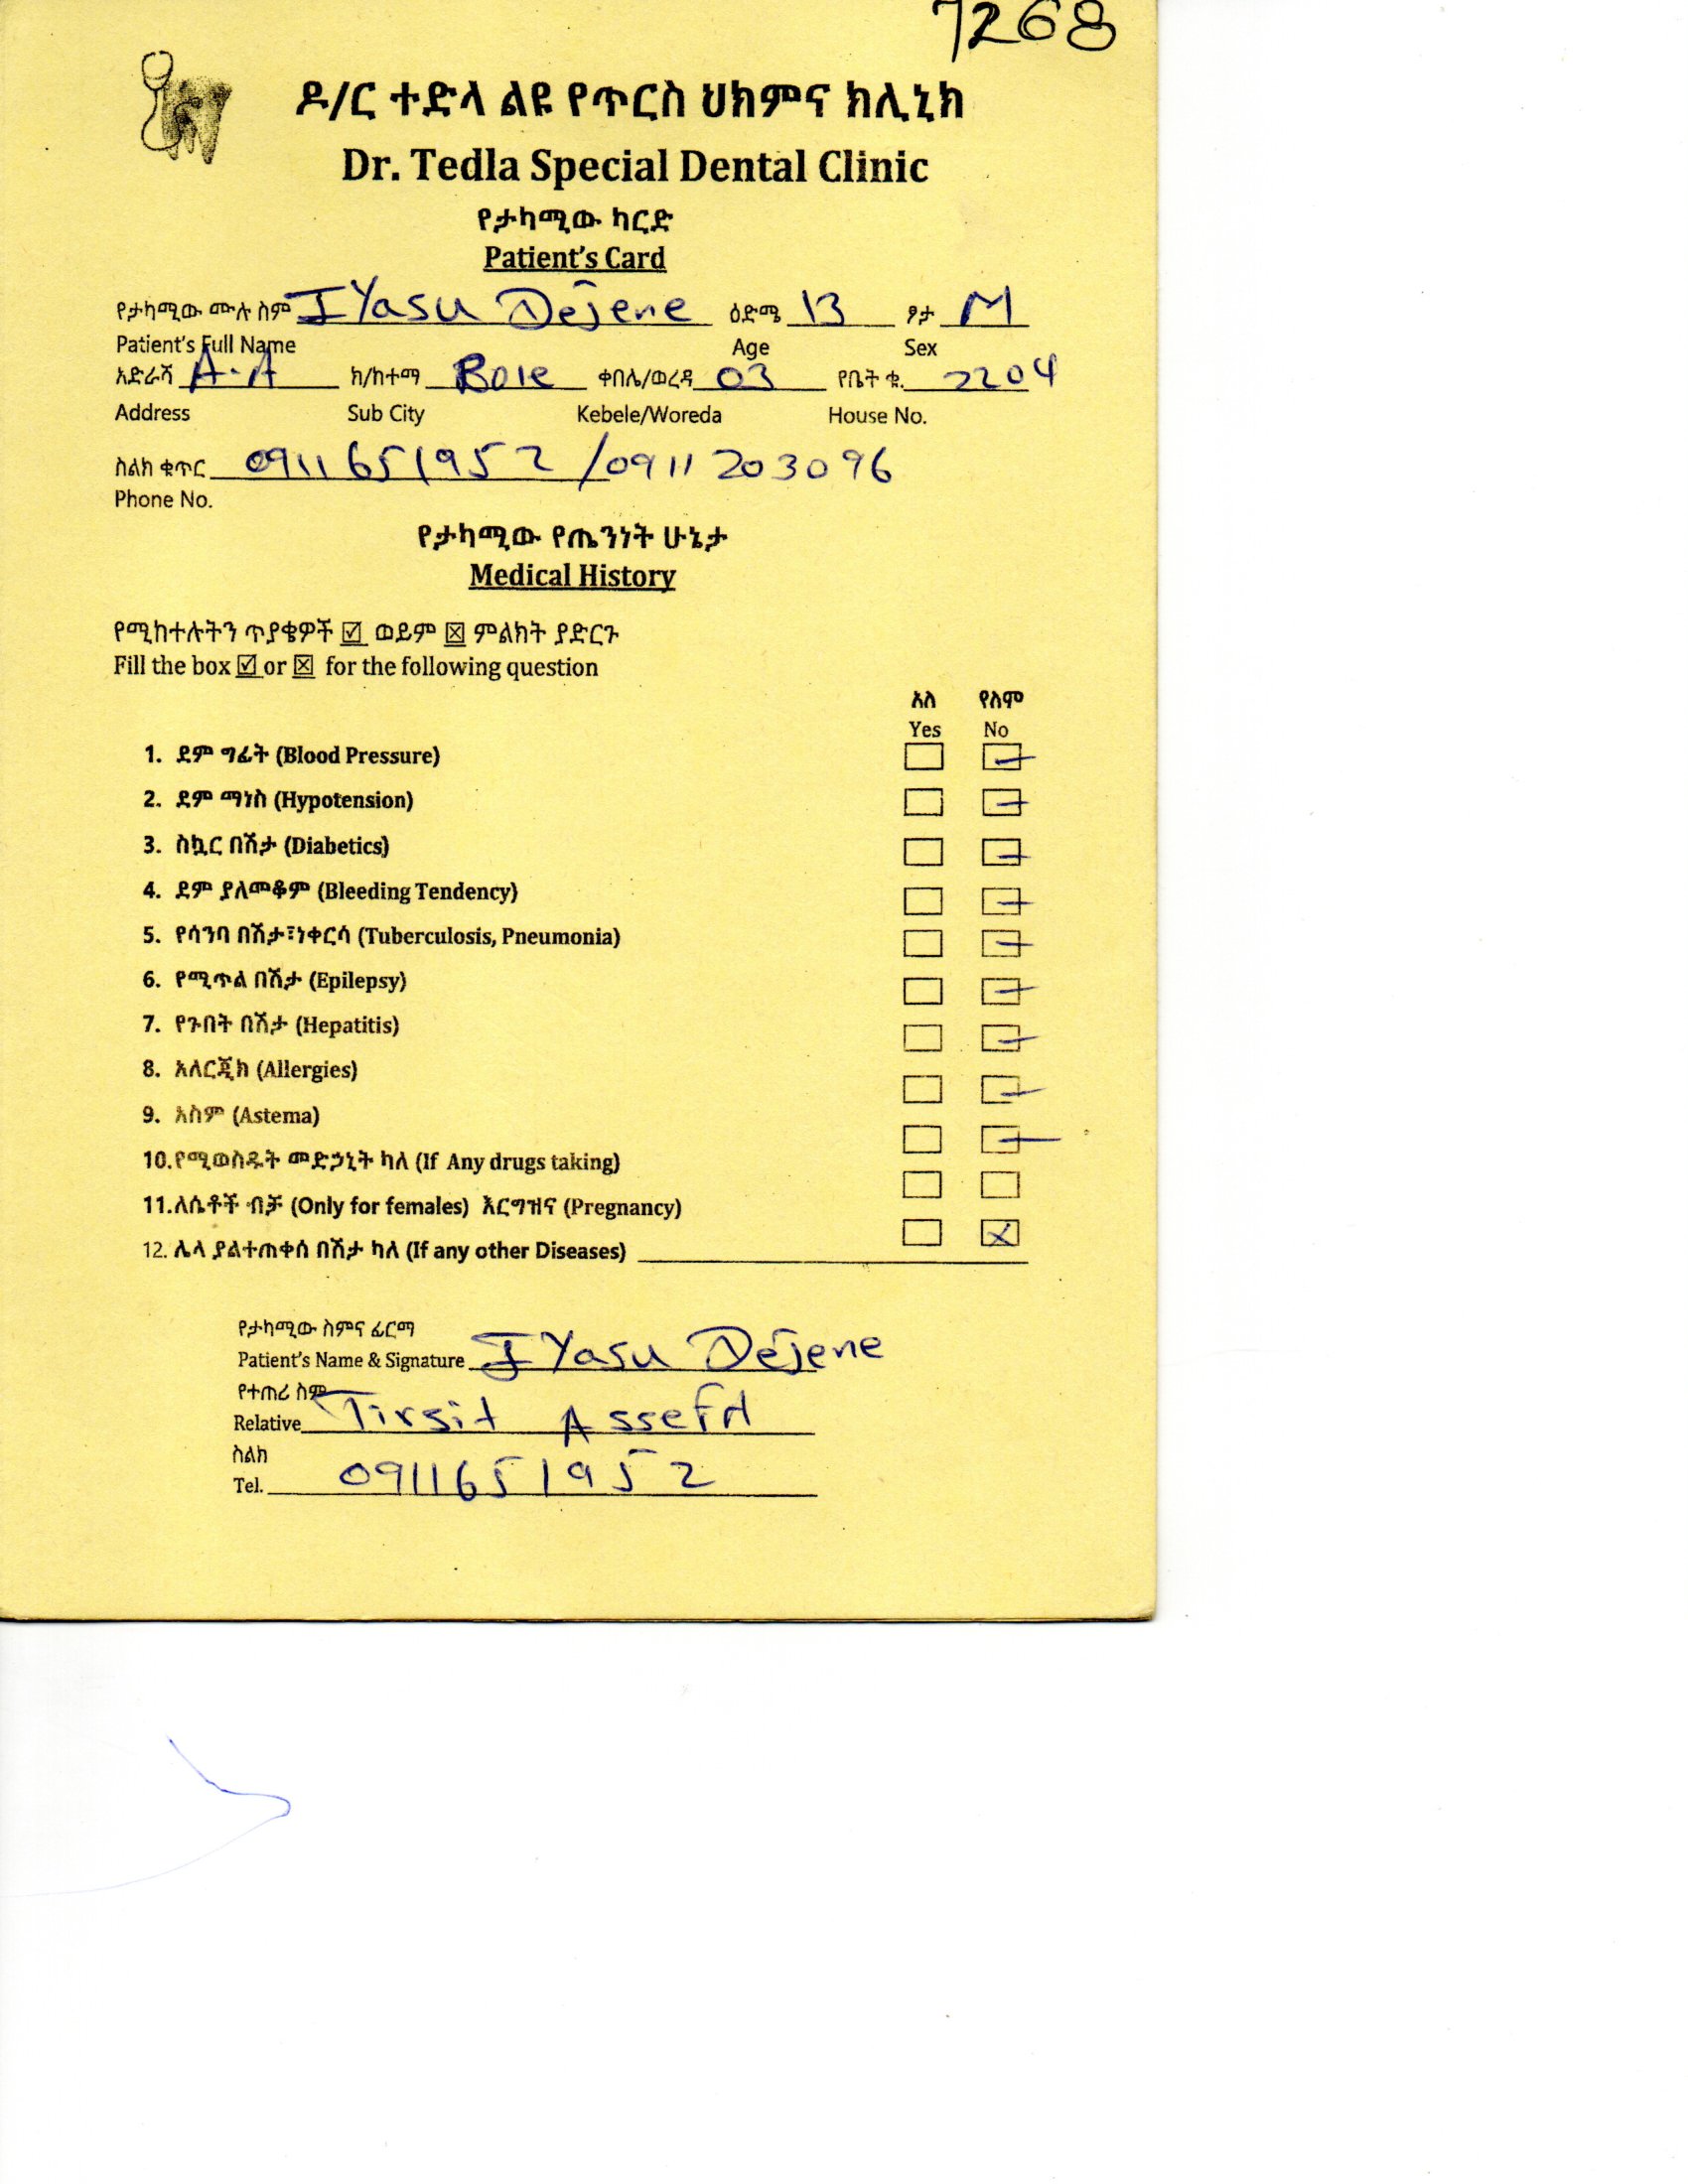 7268
ዶ/ር ተድላ ልዩ የጥርስ ህክምና ክሊኒክ
Dr. Tedla Special Dental Clinic
የታካሚው ካርድ
Patient's Card
የታካሚው ሙሉ ስም IYasu Dejene ዕድሜ 13 ፆታ M
Patient's Full Name Age Sex
አድራሻ A.A ክ/ከተማ Bole ቀበሌ/ወረዳ 03 የቤት ቁ. 2204
Address Sub City Kebele/Woreda House No.
ስልክ ቁጥር 0911651952 /0911203096
Phone No.
የታካሚው የጤንነት ሁኔታ
Medical History
የሚከተሉትን ጥያቄዎች ☑ ወይም ☒ ምልክት ያድርጉ
Fill the box ☑ or ☒ for the following question
አለ የለም
Yes No
1. ደም ግፊት (Blood Pressure)
2. ደም ማነስ (Hypotension)
3. ስኳር በሽታ (Diabetics)
4. ደም ያለመቆም (Bleeding Tendency)
5. የሳንባ በሽታ፣ነቀርሳ (Tuberculosis, Pneumonia)
6. የሚጥል በሽታ (Epilepsy)
7. የጉበት በሽታ (Hepatitis)
8. አለርጂክ (Allergies)
9. አስም (Astema)
10.የሚወስዱት መድኃኒት ካለ (If Any drugs taking)
11.ለሴቶች ብቻ (Only for females) እርግዝና (Pregnancy)
12. ሌላ ያልተጠቀሰ በሽታ ካለ (If any other Diseases)
የታካሚው ስምና ፊርማ
Patient's Name & Signature IYasu Dejene
የተጠሪ ስም
Relative Tirsit Assefa
ስልክ
Tel. 0911651952